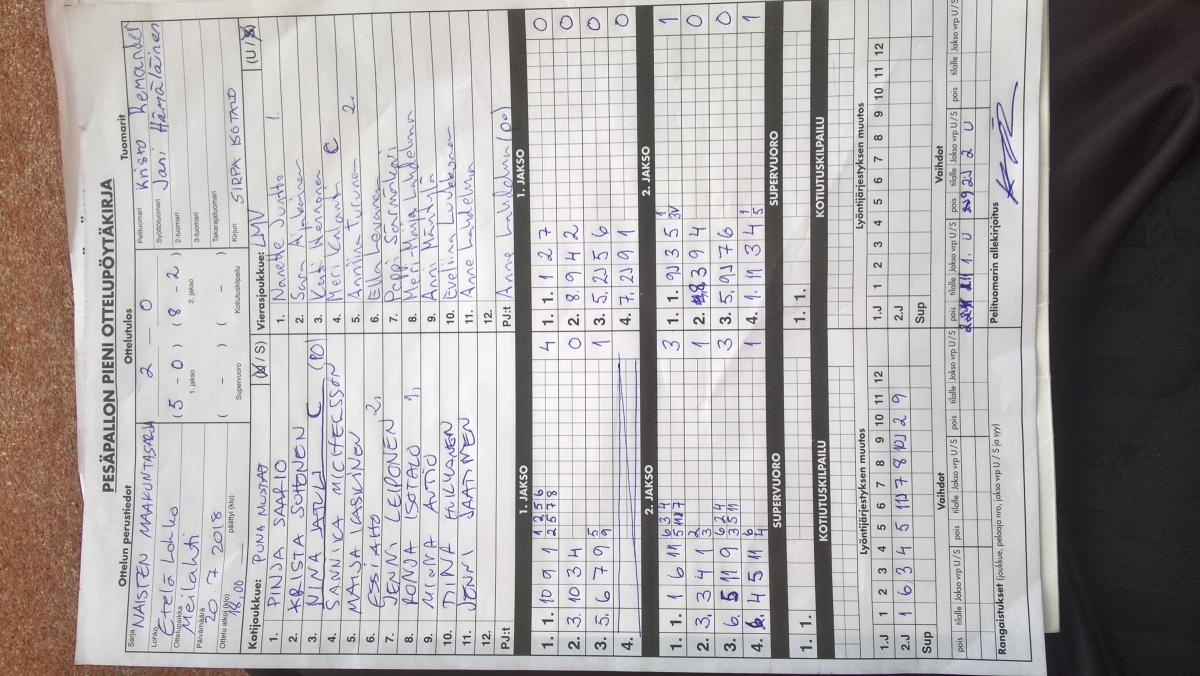 PESÄPALLON PIENI OTTELUPÖYTÄKIRJA
Ottelun perustiedot
Ottelutulos
Tuomarit
Sarja NAISTEN MAAKUNTASARJA
Lohko Etelä Lohko
Ottelupaikka Meilahti
Päivämäärä 20.7 2018
Ottelu alkoi (klo) 18.00 päättyi (klo)
2 - 0
(5 - 0) (8 - 2)
1. jakso 2. jakso
( - ) ( - )
Supervuoro Kotiutuskilpailu
Pelituomari Kristo Remander
Syöttötuomari Jani Hämäläinen
2-tuomari
3-tuomari
Takarajatuomari
Kirjuri SIRPA ISOTALO
Kotijoukkue: PUNA MUSTAT (U / S)
1. PINJA SAARIO
2. KRISTA SUHONEN
3. NINA JATULI C (PO)
4. SANNIKA MICHELSSON
5. MAIJA KASKINEN
6. ESSI AHO 2,
7. JENNI LEIPONEN
8. RONJA ISOTALO 1,
9. MINNA AUTIO
10. TIINA HUKKANEN
11. JENNI JAATINEN
12.
PJ:t
Vierasjoukkue: LMV (U / S)
1. Nanette Juntto 1.
2. Sara Aipkainen
3. Kati Hannonen
4. Meri Kalanti C
5. Anniina Turunen 2.
6. Ella Levänen
7. Peppi Särmäkari
8. Meri-Maija Lahdelma
9. Anni Mäntylä
10. Eveliina Luukkonen
11. Anne Lahdelma
12.
PJ:t Anne Lahdelma (00)
1. JAKSO
1. JAKSO
1. 1. 10 9 1 4
2. 3. 10 3 4 0
3. 5. 6 7 9 1
4.
1. 1. 1 2 7 0
2. 8. 9 4 2 0
3. 5. 6 0
4. 7. 9 1 0
2. JAKSO
2. JAKSO
1. 1. 1 6 11 3
2. 3, 3 4 1 1
3. 6, 5 11 9 3
4. 4 5 11 1
1. 1. 3 5 1
2. 3 9 4 0
3. 5. 7 6 0
4. 1. 11 3 4 1
SUPERVUORO
SUPERVUORO
1. 1.
1. 1.
KOTIUTUSKILPAILU
KOTIUTUSKILPAILU
Lyöntijärjestyksen muutos
Lyöntijärjestyksen muutos
1.J 1 2 3 4 5 6 7 8 9 10 11 12
2.J 1 6 3 4 5 11 7 8 10 2 9
Sup
1.J 1 2 3 4 5 6 7 8 9 10 11 12
2.J
Sup
Vaihdot
Vaihdot
pois tilalle Jakso vrp U / S pois tilalle Jakso vrp U / S pois tilalle Jakso vrp U / S
pois tilalle Jakso vrp U / S pois tilalle Jakso vrp U / S pois tilalle Jakso vrp U / S
Rangaistukset (joukkue, pelaaja nro, jakso vrp U / S ja syy)
Pelituomarin allekirjoitus